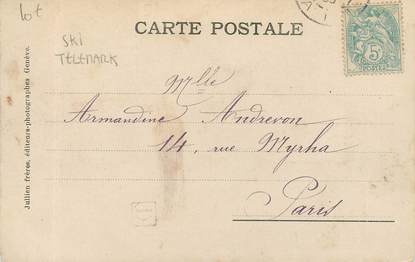 lot
CARTE POSTALE
SKI
TELEMARK
5c
Mlle
Armandine Andrevon
14, rue Myrha
Paris
Jullien frères, éditeurs-photographes Genève.